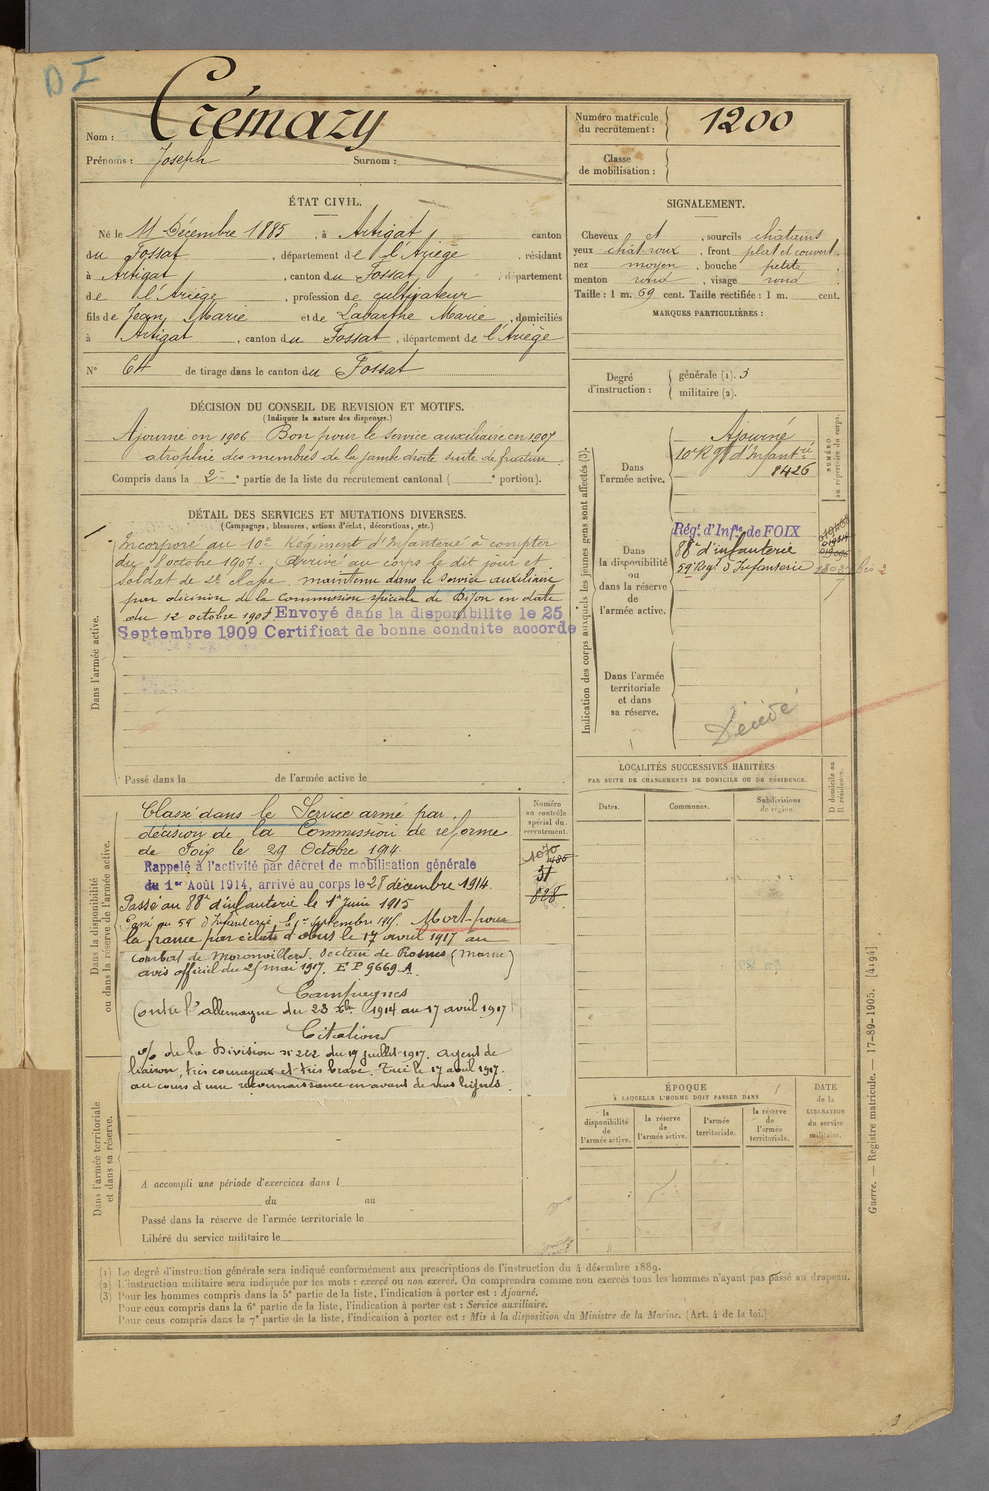 DI
Nom : Crémazy
Prénoms : Joseph Surnom :
Numéro matricule du recrutement : 1200
Classe de mobilisation :
ÉTAT CIVIL.
Né le 11 Décembre 1885, à Artigat, canton
du Fossat, département de l'Ariège, résidant
à Artigat, canton du Fossat, département
de l'Ariège, profession de cultivateur
fils de Jean Marie et de Labarthe Marie, domiciliés
à Artigat, canton du Fossat, département de l'Ariège
N° 64 de tirage dans le canton du Fossat
SIGNALEMENT.
Cheveux et, sourcils châtains
yeux chât roux, front plat et couvert,
nez moyen, bouche petite,
menton rond, visage rond.
Taille : 1 m. 69 cent. Taille rectifiée : 1 m. cent.
MARQUES PARTICULIÈRES :
Degré d'instruction : générale (1). 3
militaire (2).
DÉCISION DU CONSEIL DE REVISION ET MOTIFS.
(Indiquer la nature des dispenses.)
Ajourné en 1906 Bon pour le service auxiliaire en 1907
atrophie des membres de la jambe droite suite de fracture
Compris dans la 2e partie de la liste du recrutement cantonal ( e portion).
DÉTAIL DES SERVICES ET MUTATIONS DIVERSES.
(Campagnes, blessures, actions d'éclat, décorations, etc.)
Dans l'armée active.
Incorporé au 10e Régiment d'Infanterie à compter
du 8 octobre 1907. Arrivé au corps le dit jour et
soldat de 2e classe. maintenu dans le service auxiliaire
par décision de la Commission spéciale de Dijon en date
du 12 octobre 1907. Envoyé dans la disponibilité le 25
Septembre 1909 Certificat de bonne conduite accordé
Passé dans la de l'armée active le
Indication des corps auxquels les jeunes gens sont affectés (3).
NUMÉRO au répertoire du corps.
Dans l'armée active.
Ajourné
10e Rgt d'Infantrie
8426
Dans la disponibilité ou dans la réserve de l'armée active.
Rég.t d'Inf.ie de FOIX
88e d'infanterie
59e Regt d'Infanterie
Dans l'armée territoriale et dans sa réserve.
Décédé
LOCALITÉS SUCCESSIVES HABITÉES
PAR SUITE DE CHANGEMENTS DE DOMICILE OU DE RÉSIDENCE.
Dates. Communes. Subdivisions de région. D domicile ou R résidence.
Dans la disponibilité ou dans la réserve de l'armée active.
Numéro au contrôle spécial du recrutement.
Classé dans le Service armé par
décision de la Commission de reforme
de Foix le 29 Octobre 1914.
Rappelé à l'activité par décret de mobilisation générale
du 1er Août 1914, arrivé au corps le 28 décembre 1914.
Passé au 88e d'infanterie le 1er Juin 1915
Passé au 59e d'Infanterie le 1er Septembre 1915. Mort pour
la france par éclats d'obus le 17 avril 1917 au
combat de Moronvillers. Secteur de Rosnes (Marne)
avis officiel du 25 mai 1917. E.P 9669.A.
Campagnes
Contre l'allemagne du 23 Xbre 1914 au 17 avril 1917
Citations
o/ de la Division n° 222 du 19 juillet 1917. agent de
liaison, très courageux et très brave. Tué le 17 avril 1917.
au cours d'une reconnaissance en avant de nos lignes.
1070
31
828
Dans l'armée territoriale et dans sa réserve.
A accompli une période d'exercices dans l
du au
Passé dans la réserve de l'armée territoriale le
Libéré du service militaire le
ÉPOQUE
À LAQUELLE L'HOMME DOIT PASSER DANS
la disponibilité de l'armée active.
la réserve de l'armée active.
l'armée territoriale.
la réserve de l'armée territoriale.
DATE de la LIBÉRATION du service militaire.
(1) Le degré d'instruction générale sera indiqué conformément aux prescriptions de l'instruction du 4 décembre 1889.
(2) L'instruction militaire sera indiquée par les mots : exercé ou non exercé. On comprendra comme non exercés tous les hommes n'ayant pas passé au drapeau.
(3) Pour les hommes compris dans la 5e partie de la liste, l'indication à porter est : Ajourné.
Pour ceux compris dans la 6e partie de la liste, l'indication à porter est : Service auxiliaire.
Pour ceux compris dans la 7e partie de la liste, l'indication à porter est : Mis à la disposition du Ministre de la Marine. (Art. 4 de la loi.)
Guerre. — Registre matricule. — 17-89-1905. [4194]